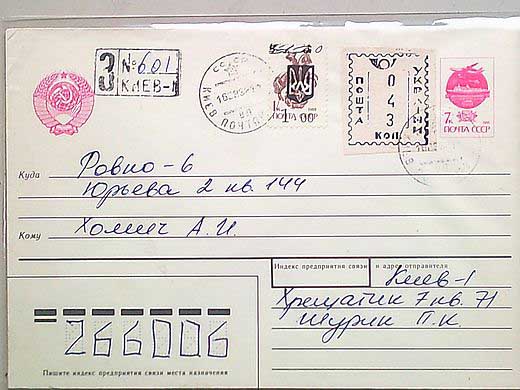 З №601
КИЕВ-1
СССР
КИЕВ
ПОЧТАМТ
1.00
ПОШТА
УКРАЇНИ
0
4
3
КОП.
7к
ПОЧТА СССР
Куда Ровно-6
Юрьева 2 кв. 144
Кому Хомич А.И.
Индекс предприятия связи и адрес отправителя
Киев-1
Хрещатик 7 кв. 71
Шурик П.К.
266006
Пишите индекс предприятия связи места назначения